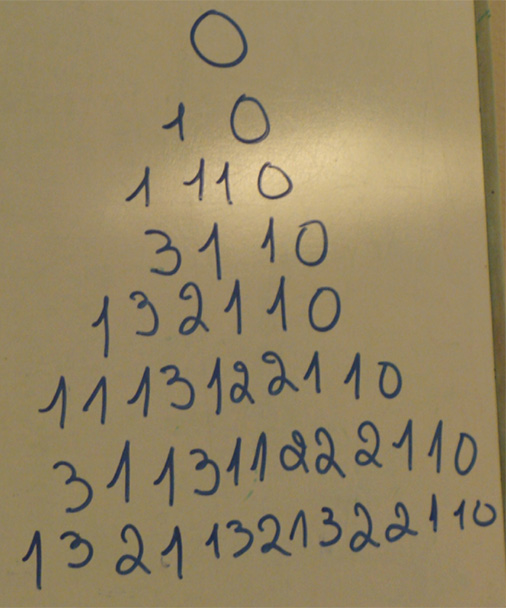 0
1 0
1 11 0
3 1 1 0
1 3 2 1 1 0
1113122110
311311222110
13211321322110